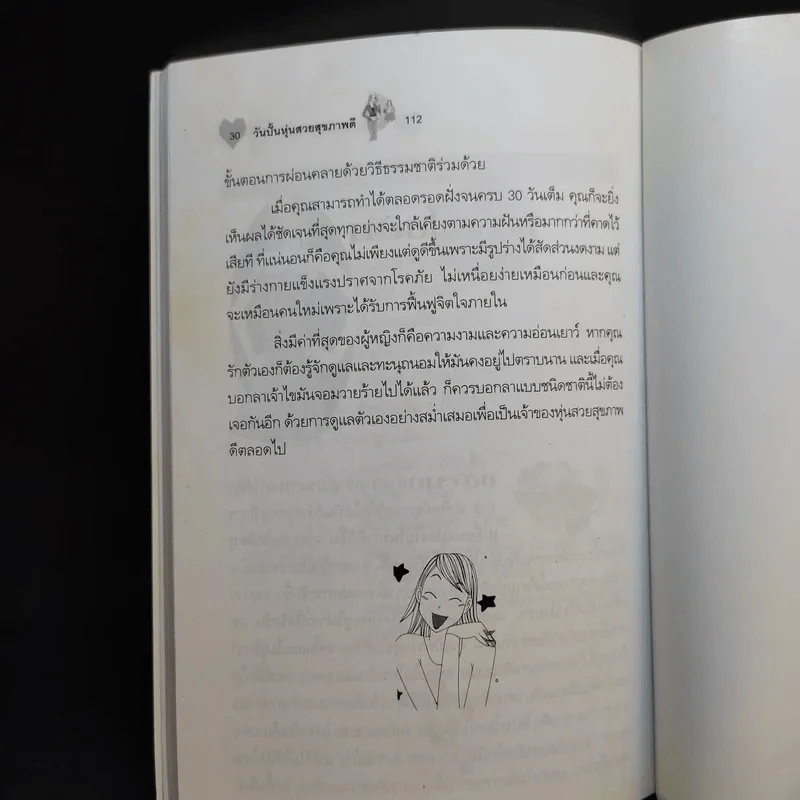 30 วันปั้นหุ่นสวยสุขภาพดี 112
ขั้นตอนการผ่อนคลายด้วยวิธีธรรมชาติร่วมด้วย
เมื่อคุณสามารถทำได้ตลอดรอดฝั่งจนครบ 30 วันเต็ม คุณก็จะยิ่ง
เห็นผลได้ชัดเจนที่สุดทุกอย่างจะใกล้เคียงตามความฝันหรือมากกว่าที่คาดไว้
เสียที ที่แน่นอนก็คือคุณไม่เพียงแต่ดูดีขึ้นเพราะมีรูปร่างได้สัดส่วนงดงาม แต่
ยังมีร่างกายแข็งแรงปราศจากโรคภัย ไม่เหนื่อยง่ายเหมือนก่อนและคุณ
จะเหมือนคนใหม่เพราะได้รับการฟื้นฟูจิตใจภายใน
สิ่งมีค่าที่สุดของผู้หญิงก็คือความงามและความอ่อนเยาว์ หากคุณ
รักตัวเองก็ต้องรู้จักดูแลและทะนุถนอมให้มันคงอยู่ไปตราบนาน และเมื่อคุณ
บอกลาเจ้าไขมันจอมวายร้ายไปได้แล้ว ก็ควรบอกลาแบบชนิดชาตินี้ไม่ต้อง
เจอกันอีก ด้วยการดูแลตัวเองอย่างสม่ำเสมอเพื่อเป็นเจ้าของหุ่นสวยสุขภาพ
ดีตลอดไป